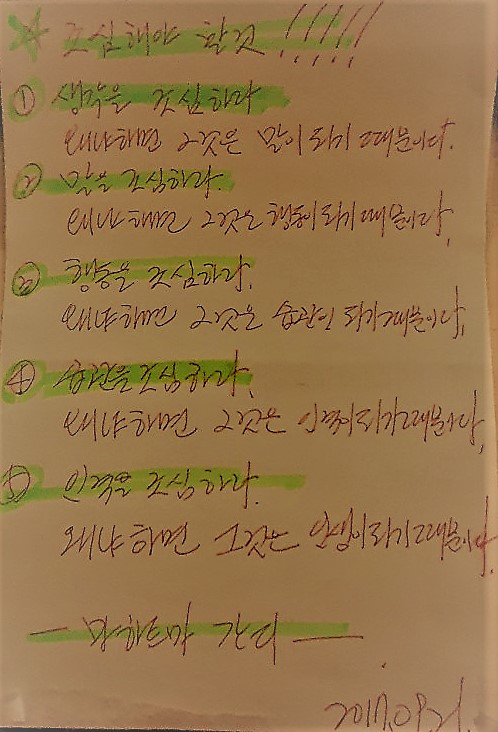 ☆ 조심해야 할것 !!!!!
① 생각을 조심하라
왜냐하면 그것은 말이 되기 때문이다.
② 말을 조심하라.
왜냐하면 그것은 행동이 되기 때문이다.
③ 행동을 조심하라.
왜냐하면 그것은 습관이 되기 때문이다.
④ 습관을 조심하라.
왜냐하면 그것은 인격이 되기 때문이다.
⑤ 인격을 조심하라.
왜냐하면 그것은 인생이 되기 때문이다.
— 마하트마 간디 —
2017.09.21.